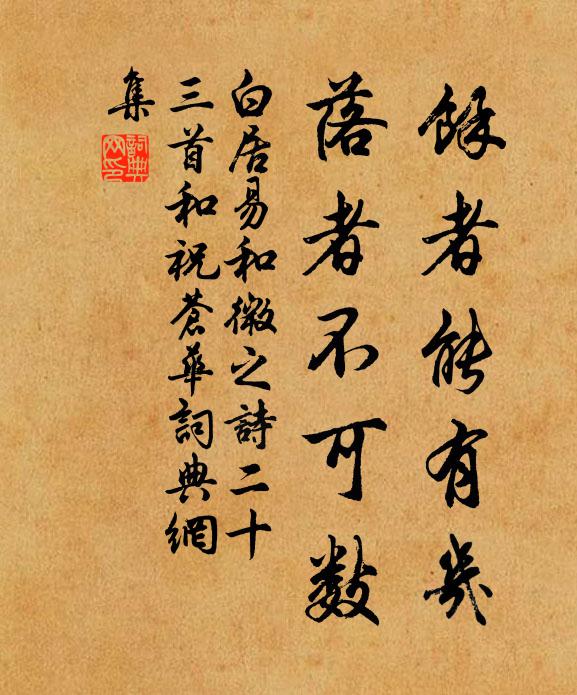 餘者能有幾
落者不可數
白居易和微之詩二十
三首和祝蒼華詞典網
集
詞典網印